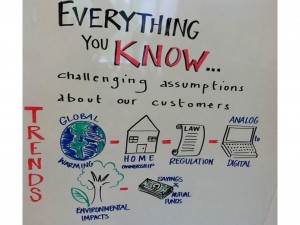 EVERYTHING
YOU KNOW...
challenging assumptions
about our customers
TRENDS
GLOBAL
WARMING
HOME
OWNERSHIP
LAW
REGULATION
ANALOG
DIGITAL
ENVIRONMENTAL
IMPACTS
SAVINGS
&
MUTUAL
FUNDS